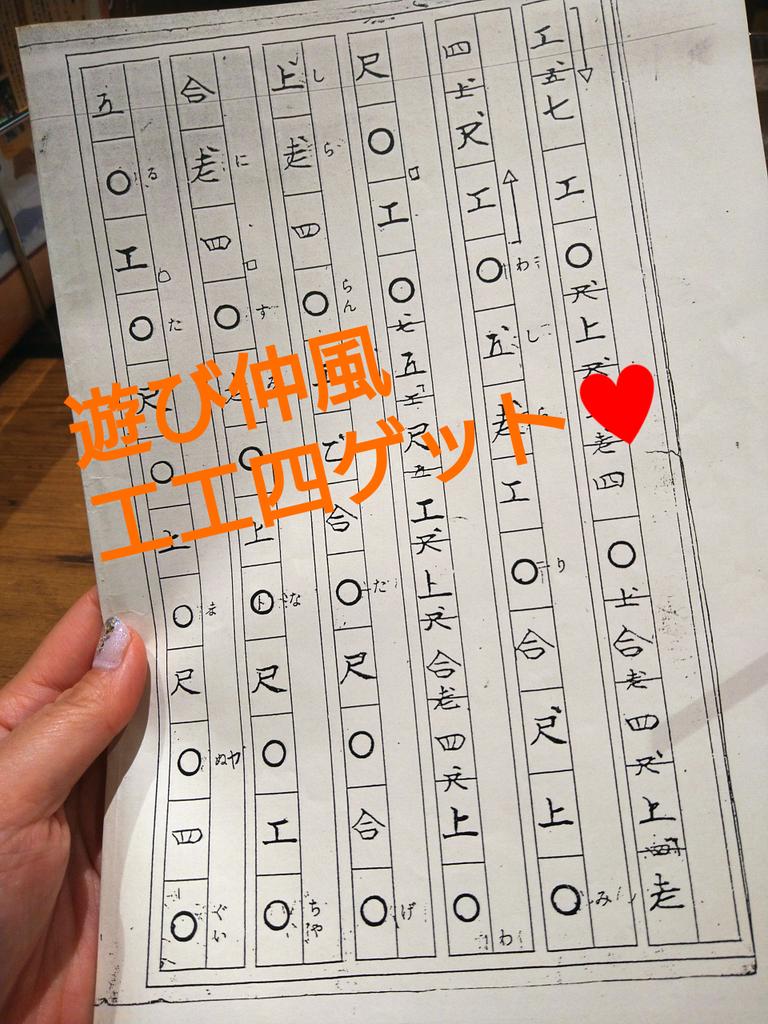 遊び仲風
工工四ゲット
工五七工○尺上尺老四○上合老四尺上四老
四上尺工○わ五し老工○り合尺上○み
尺○工○七五工尺五工尺上尺合老四尺上○わ
上し老ら四○らんで合○だ尺○合○げ
合老に四○す○上○な尺○工○ちや
五○る工○た尺○上○ま尺○ぬや四○ぐい